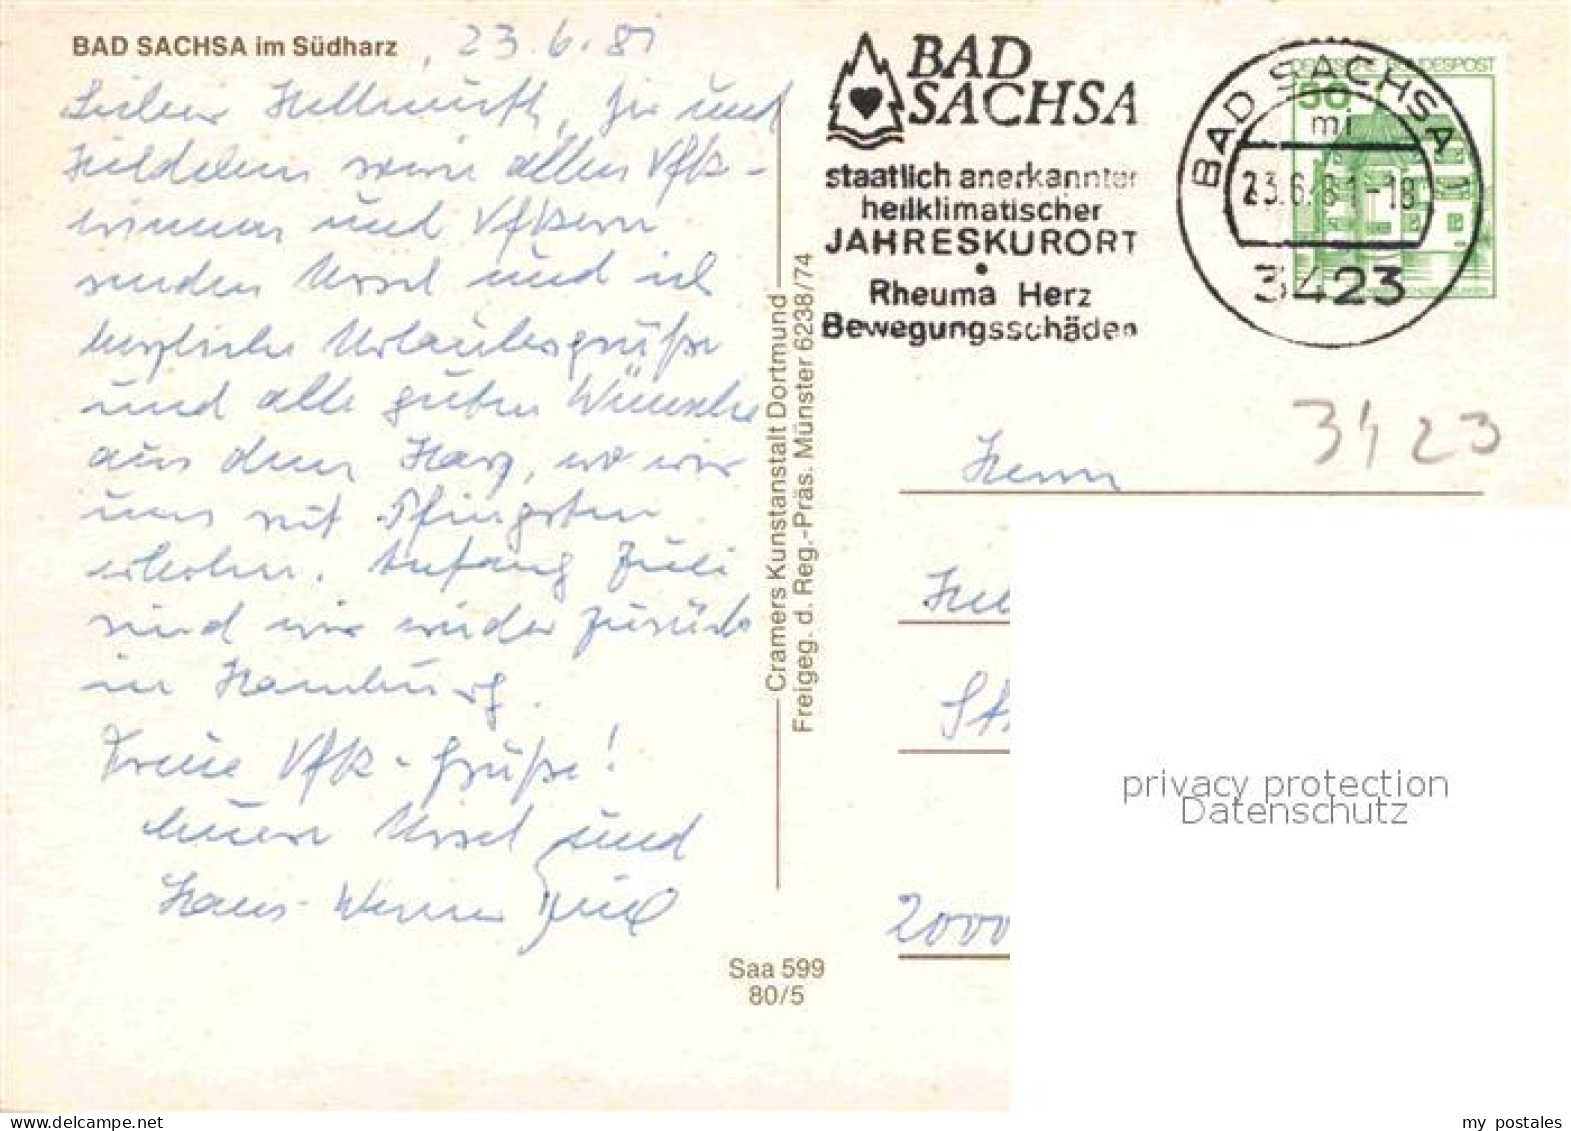 BAD SACHSA im Südharz, 23.6.81
Lieber Hellmuth, Dir und
Mädchen sowie allen VfK-
innen und VfKern
senden Ursel und ich
herzliche Urlaubsgrüße
und alle guten Wünsche
aus dem Harz, wo wir
uns seit Pfingsten
erholen. Anfang Juli
sind wir wieder zurück
in Hamburg.
Treue VfK-Grüße!
Eure Ursel und
Hans-Werner
Cramers Kunstanstalt Dortmund
Freigeg. d. Reg.-Präs. Münster 6238/74
Saa 599
80/5
BAD
SACHSA
staatlich anerkannter
heilklimatischer
JAHRESKURORT
•
Rheuma Herz
Bewegungsschäden
BAD SACHSA
mi
23.6.81-18
3423
DEUTSCHE BUNDESPOST
50
3423
Herrn
Hel
St
2000
privacy protection
Datenschutz
my postales